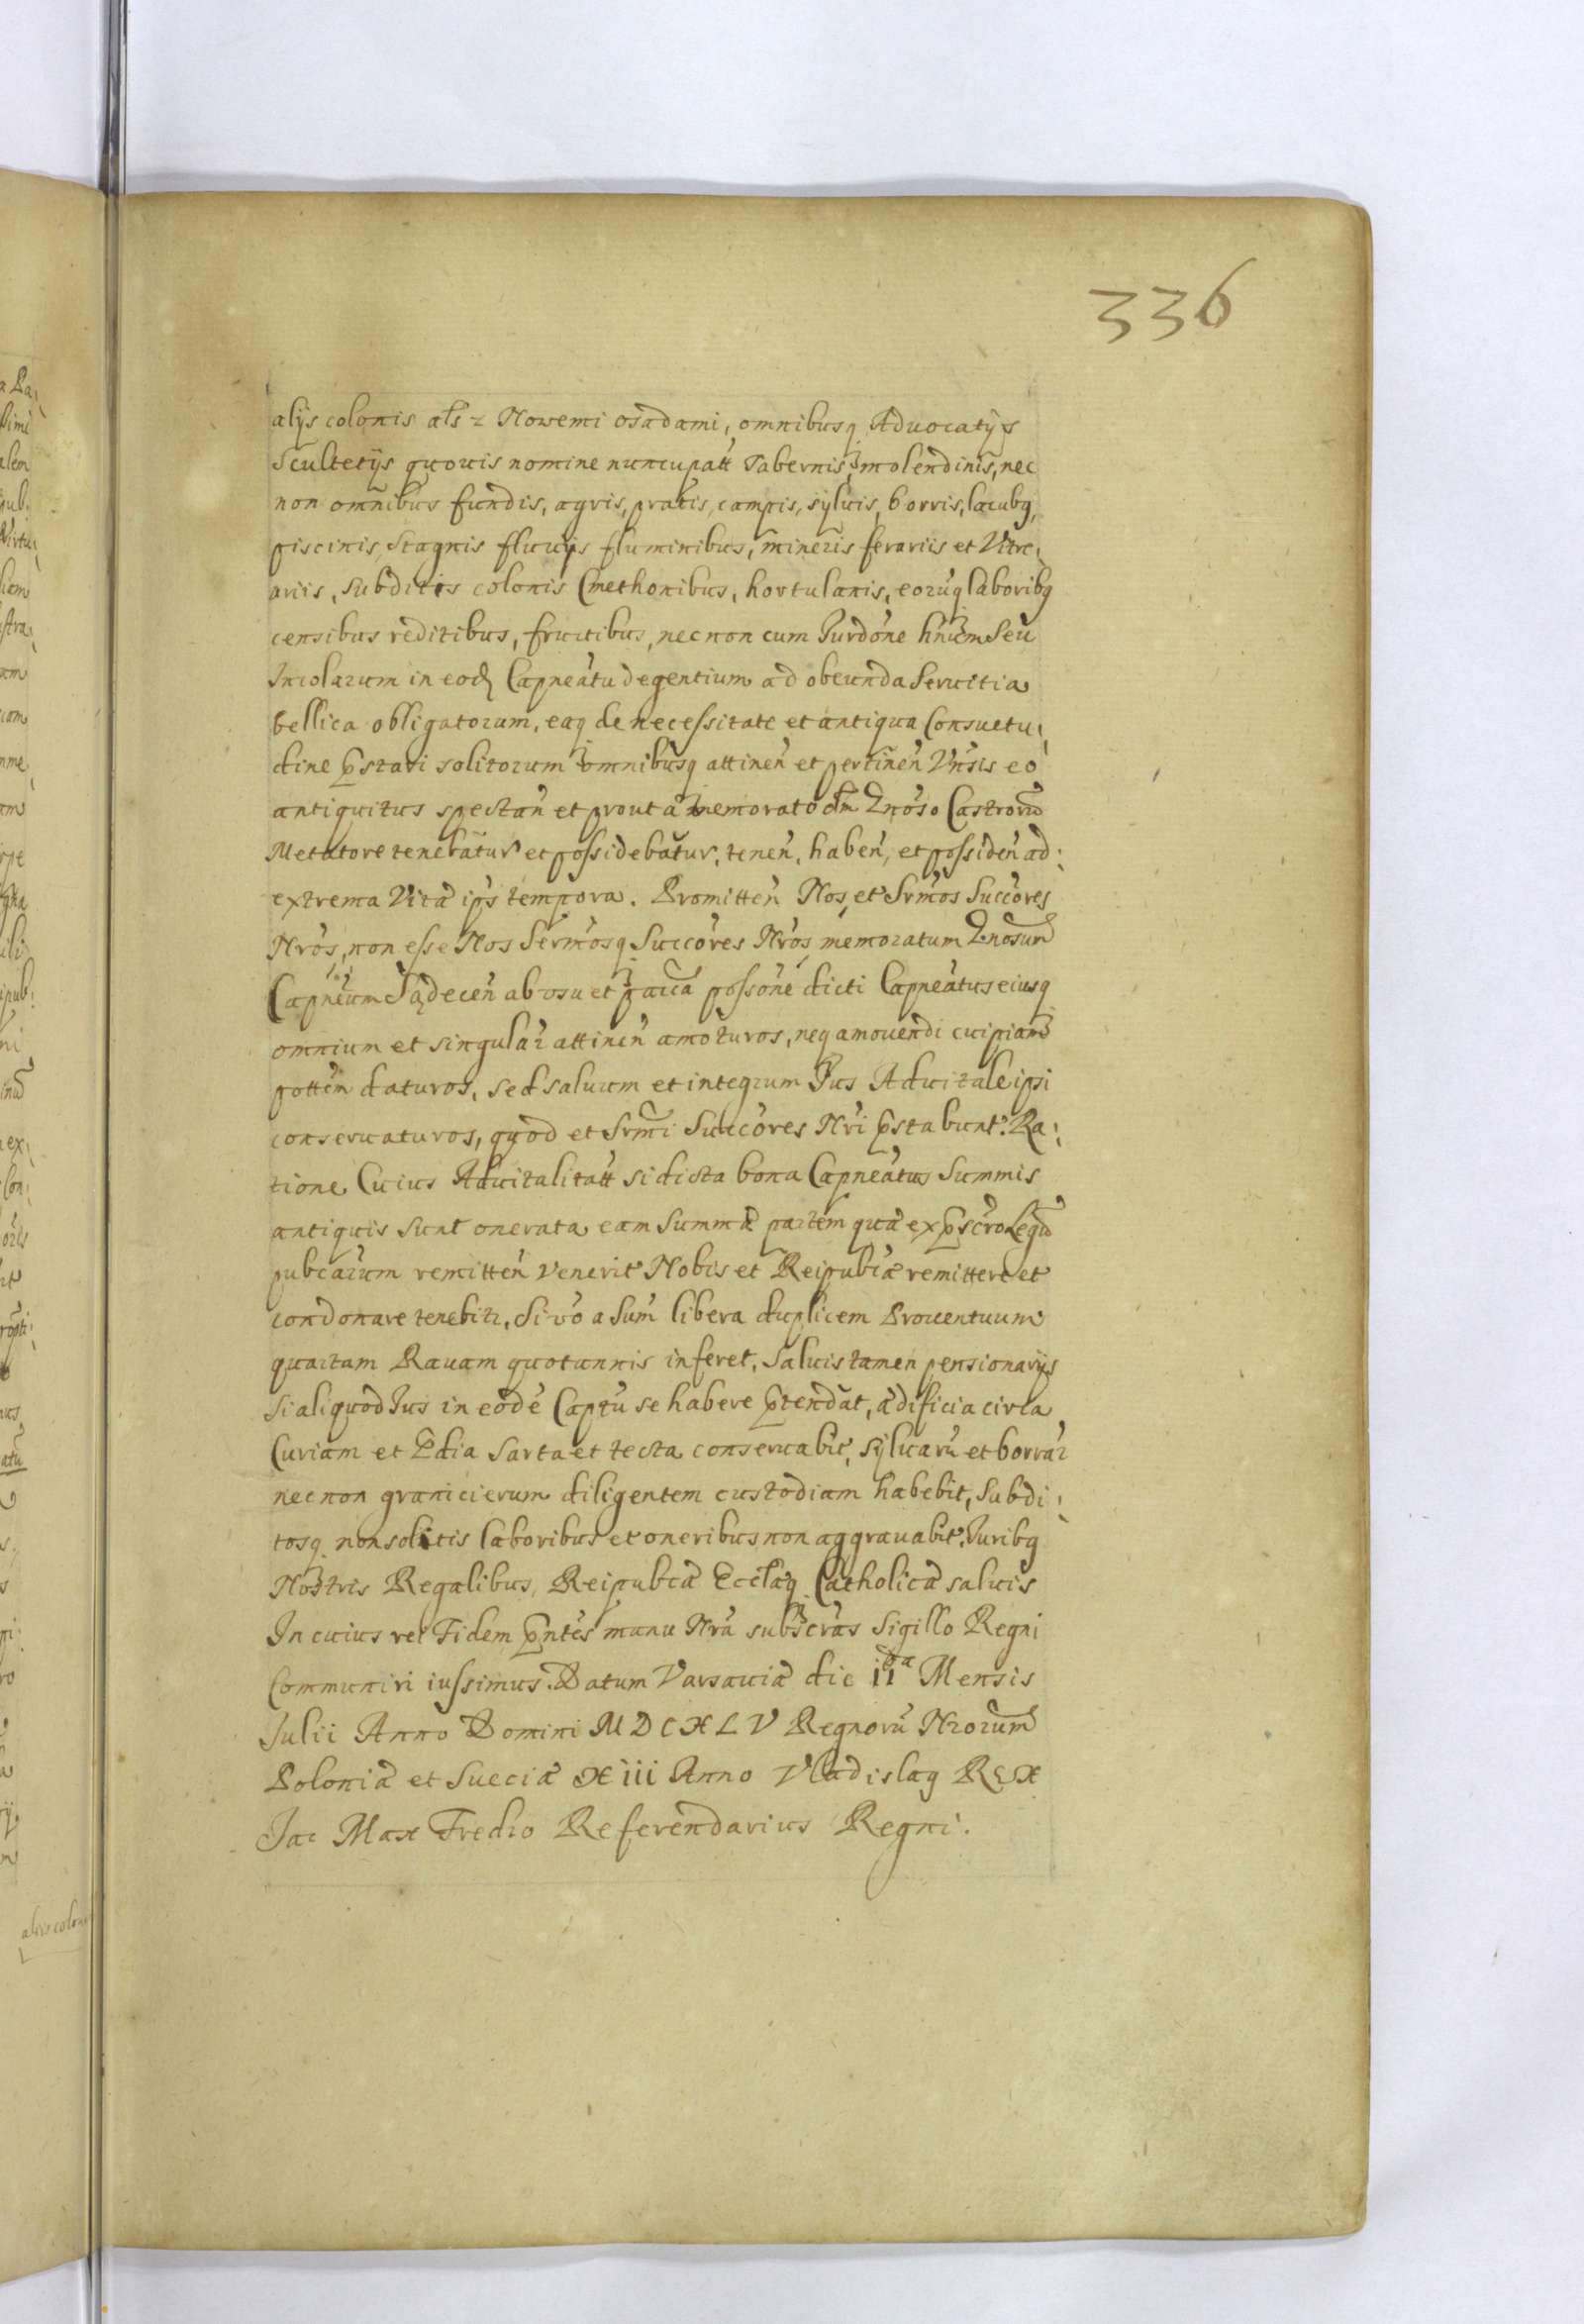 336
alijs colonis als z Nowemi osadami, omnibusq Advocatijs
Scultetijs quovis nomine nuncupatt Tabernis, molendinis, nec
non omnibus fundis, agris, pratis, campis, sylvis, borris, lacubq,
piscinis, Stagnis fluvijs fluminibus, mineris ferariis et Vitre,
ariis, Subditis colonis Cmethonibus, hortulanis, eoruq laboribq
censibus reditibus, fructibus, nec non cum Jurdone hnium Seu
Incolarum in eod Capneatu degentium ad obeunda Servitia
bellica obligatorum, eaq de necessitate et antiqua Consuetu,
dine pstari solitorum omnibusq attinen et pertinen Vnsis eo
antiquitus spectan et prout a memorato olm Gnoso Castroru
Metatore tenebatur et possidebatur, tenen, haben, et possiden ad:
extrema Vitæ ips tempora. Promitten Nos, et Srmos Succores
Nros, non esse Nos Sermosq Succores Nros memoratum Gnosum
Capneum Sądecen ab usu et pacca possone dicti Capneatus eiusq
omnium et singular attinen amoturos, neq amovendi cuipiam
pottem daturos, sed salvum et integrum Jus Advitale ipsi
conservaturos, quod et Srmi Succores Nri pstabunt. Ra:
tione Cuius Advitalitatt si dicta bona Capneatus Summis
antiquis sunt onerata eam Summæ partem quæ ex pscro Legu
pubcarum remitten venerit Nobis et Reipubcæ remittere et
condonare tenebitr. Si vo a Sum libera duplicem Proventuum
quartam Ravam quotannis inferet, Salvis tamen pensionarijs
Si aliquod Jus in eode Captu se habere ptendat, ædificia circa
Curiam et Pdia Sarta et tecta conservabit, sylvaru et borrar
nec non granicierum diligentem custodiam habebit, Subdi:
tosq. non solitis laboribus et oneribus non aggravabit. Juribq
Nostris Regalibus, Reipubcæ Ecclæq Catholicæ salvis
In cuius rei Fidem pntes manu Nra subscras Sigillo Regni
Communiri iussimus. Datum Varsaviæ die ii a Mensis
Julii Anno Domini M D C X L V Regnoru Nrorum
Poloniæ et Sueciæ X iii Anno Vladislaq Rex
Jac Max Fredro Referendarius Regni.